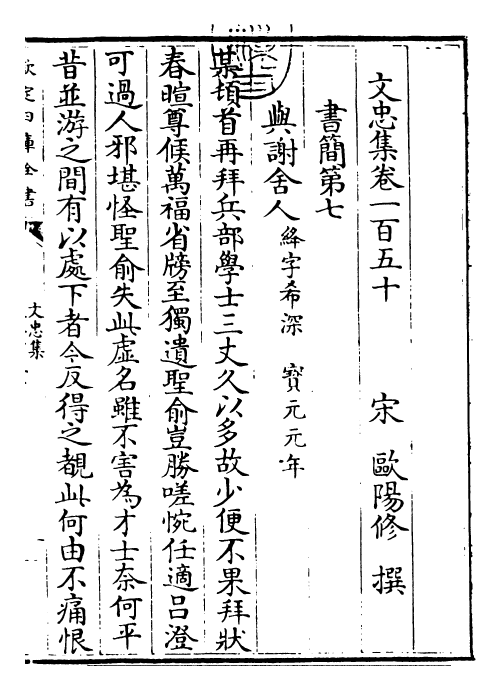 文忠集卷一百五十
宋 歐陽修 撰
書簡第七
與謝舍人 絳字希深 寶元元年
某頓首再拜兵部學士三丈久以多故少便不果拜狀
春暄尊候萬福省牓至獨遺聖俞豈勝嗟惋任適呂澄
可過人邪堪怪聖俞失此虛名雖不害為才士奈何平
昔並游之間有以處下者今反得之覩此何由不痛恨
欽定四庫全書
文忠集